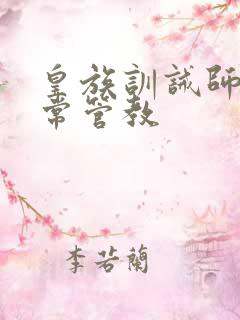 皇族訓誡師
常管教
李若蘭